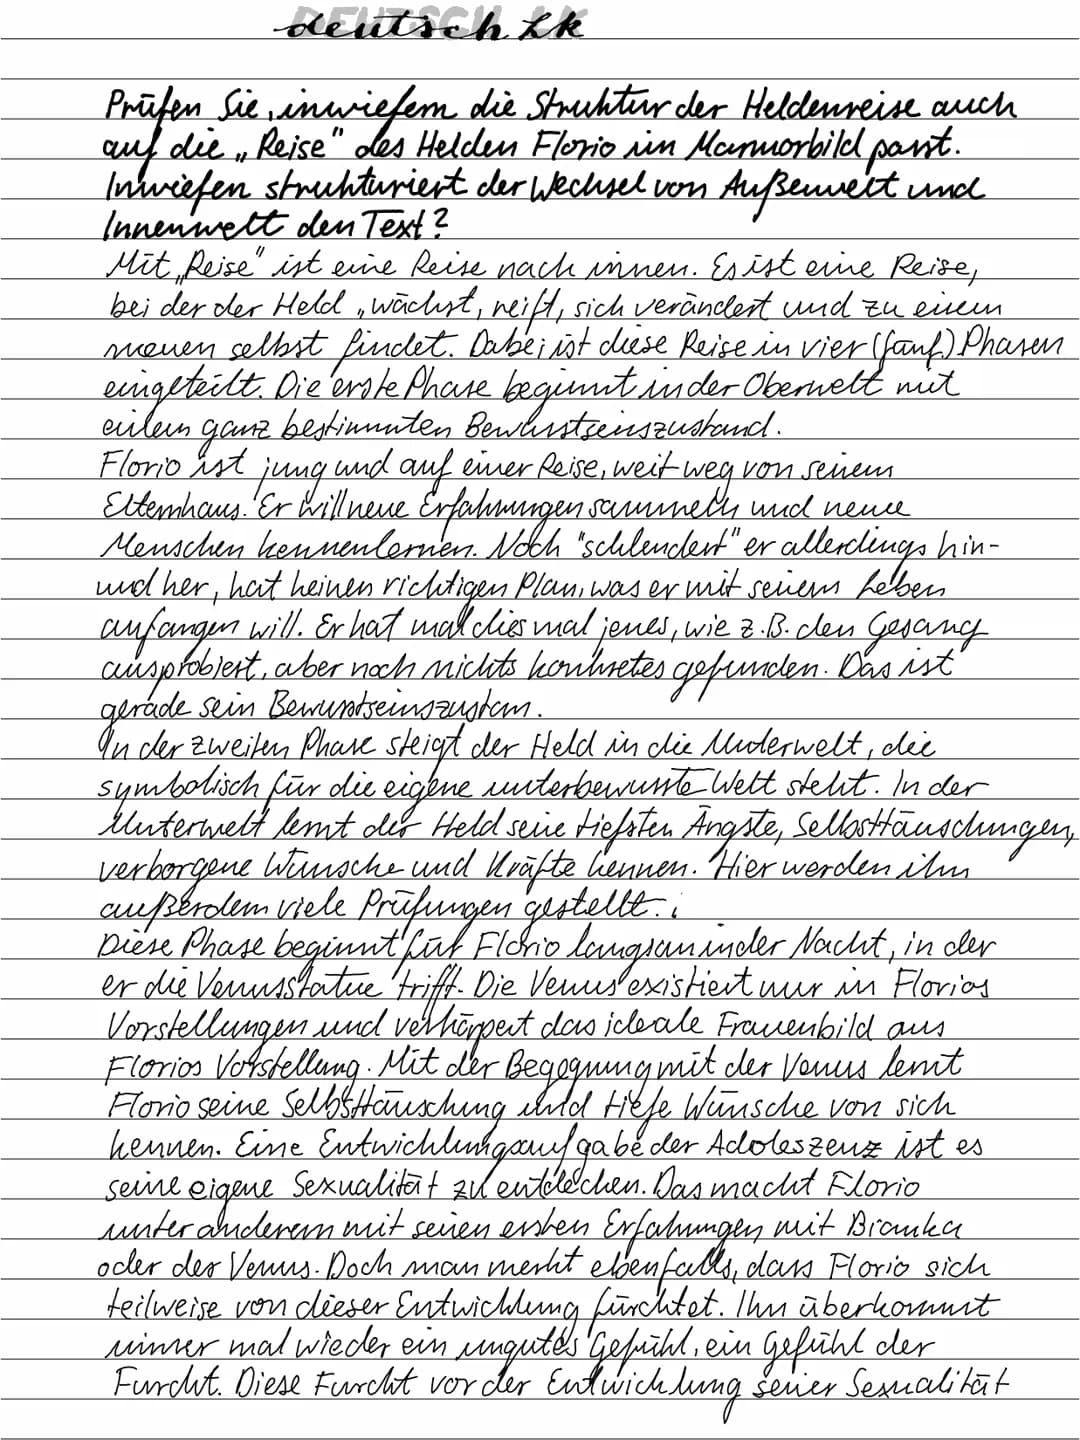 deutsch LK
Prüfen Sie, inwiefern die Struktur der Heldenreise auch
auf die „Reise" des Helden Florio im Marmorbild passt.
Inwiefen strukturiert der Wechsel von Außenwelt und
Innenwelt den Text?
Mit „Reise" ist eine Reise nach innen. Es ist eine Reise,
bei der der Held „wächst, reift, sich verändert und zu einem
neuen selbst findet. Dabei ist diese Reise in vier (fünf) Phasen
eingeteilt. Die erste Phase beginnt in der Oberwelt mit
einem ganz bestimmten Bewusstseinszustand.
Florio ist jung und auf einer Reise, weit weg von seinem
Elternhaus. Er will neue Erfahrungen sammeln und neue
Menschen kennenlernen. Noch "schlendert" er allerdings hin-
und her, hat keinen richtigen Plan, was er mit seinem Leben
anfangen will. Er hat mal dies mal jenes, wie z.B. den Gesang
ausprobiert, aber noch nichts konkretes gefunden. Das ist
gerade sein Bewusstseinszustan.
In der zweiten Phase steigt der Held in die Unterwelt, die
symbolisch für die eigene unterbewusste Welt steht. In der
Unterwelt lernt der Held seine tiefsten Ängste, Selbsttäuschungen,
verborgene Wünsche und Kräfte kennen. Hier werden ihm
außerdem viele Prüfungen gestellt.
Diese Phase beginnt für Florio langsam in der Nacht, in der
er die Venusstatue trifft. Die Venus existiert nur in Florios
Vorstellungen und verkörpert das ideale Frauenbild aus
Florios Vorstellung. Mit der Begegnung mit der Venus lernt
Florio seine Selbsttäuschung und tiefe Wünsche von sich
kennen. Eine Entwicklungsaufgabe der Adoleszenz ist es
seine eigene Sexualität zu entdecken. Das macht Florio
unter anderem mit seinen ersten Erfahrungen mit Bianka
oder der Venus. Doch man merkt ebenfalls, dass Florio sich
teilweise von dieser Entwicklung fürchtet. Ihn überkommt
immer mal wieder ein ungutes Gefühl, ein Gefühl der
Furcht. Diese Furcht vor der Entwicklung seiner Sexualität